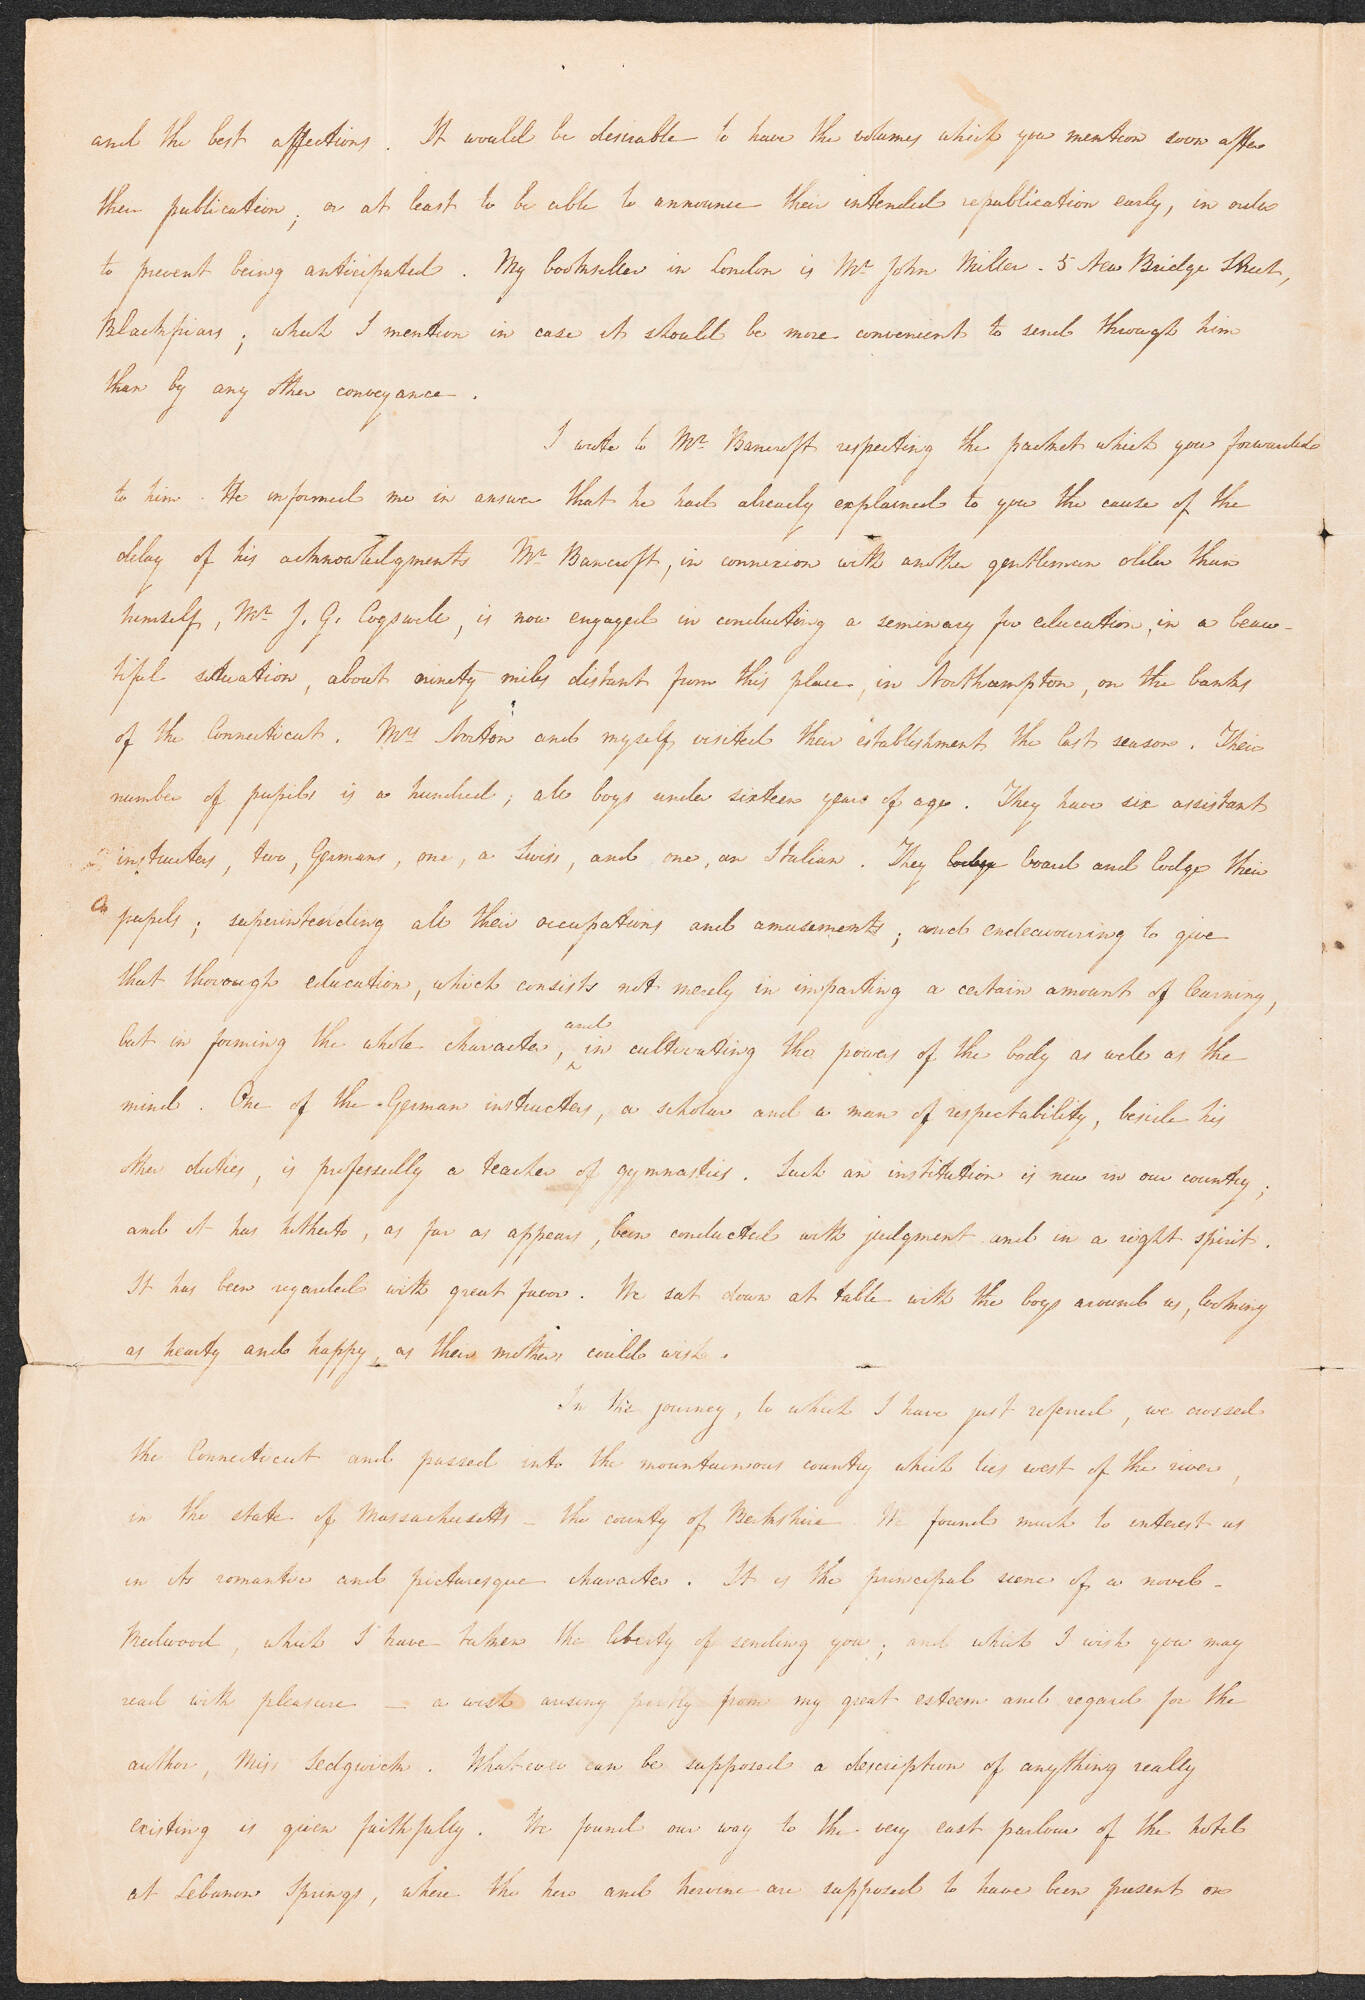 and the best affections. It would be desirable to have the volumes which you mention soon after
their publication; or at least to be able to announce their intended republication early, in order
to prevent being anticipated. My bookseller in London is Mr John Miller. 5 New Bridge Street,
Blackfriars; which I mention in case it should be more convenient to send through him
than by any other conveyance.
I wrote to Mr Bancroft respecting the packet which you forwarded
to him. He informed me in answer that he had already explained to you the cause of the
delay of his acknowledgments Mr Bancroft, in connexion with another gentleman older than
himself, Mr J. G. Cogswell, is now engaged in conducting a seminary for education, in a beau-
tiful situation, about ninety miles distant from this place, in Northampton, on the banks
of the Connecticut. Mrs Norton and myself visited their establishment the last season. Their
number of pupils is a hundred; all boys under sixteen years of age. They have six assistant
instructers, two, Germans, one, a Swiss, and one, an Italian. They lodge board and lodge their
pupils; superintending all their occupations and amusements; and endeavouring to give
that thorough education, which consists not merely in imparting a certain amount of learning,
but in forming the whole character, and in cultivating the powers of the body as well as the
mind. One of the German instructers, a scholar and a man of respectability, beside his
other duties, is professedly a teacher of gymnastics. Such an institution is new in our country;
and it has hitherto, as far as appears, been conducted with judgment and in a right spirit.
It has been regarded with great favor. We sat down at table with the boys around us, looking
as hearty and happy, as their mothers could wish.
In the journey, to which I have just referred, we crossed
the Connecticut and passed into the mountainous country which lies west of the river,
in the state of Massachusetts – the county of Berkshire We found much to interest us
in its romantic and picturesque character. It is the principal scene of a novel –
Redwood, which I have taken the liberty of sending you; and which I wish you may
read with pleasure – a wish arising partly from my great esteem and regard for the
author, Miss Sedgwick. Whatever can be supposed a description of anything really
existing is given faithfully. We found our way to the very east parlour of the hotel
at Lebanon Springs, where the hero and heroine are supposed to have been present on